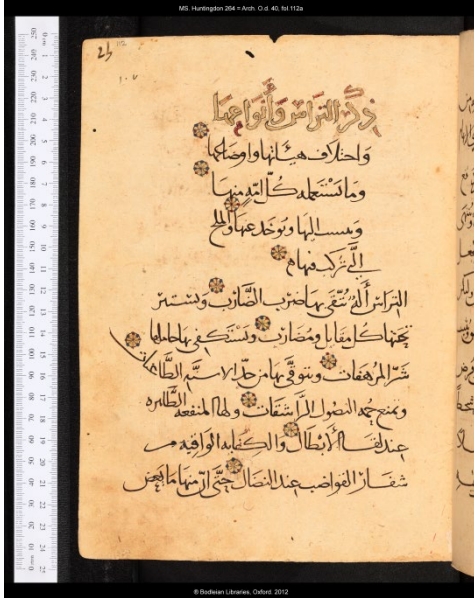 MS. Huntingdon 264 = Arch. O.d. 40, fol.112a
112
ذكر التراس وأنواعها
واختلاف هيئاتها وأوضاعها
وما تستعمله كل أمة منها
وينسب إليها ويوخذ عنها والملح
التي تركب فيها
التراس آلة يُتقى بها ضرب الضارب ويستتر
تحتها كل مقابل ومضارب ويستكفى بها حاملها
شر المرهفات ويتوقى بها من حد الاسنة الطاعنات
وتمنع حمة النصول الراشقات ولها المنفعة الظاهرة
عند لقاء الأبطال والكفاية الوافية من
شفار القواضب عند النضال حتى ان منها ما يعض
© Bodleian Libraries, Oxford. 2012